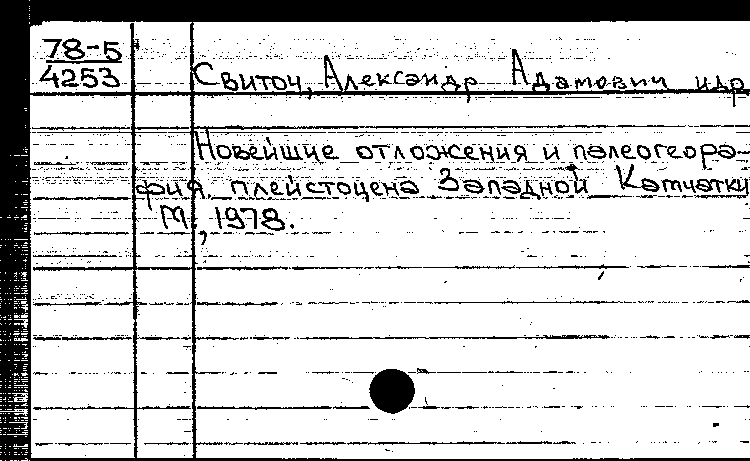 78-5
4253
Свиточ, Александр Адамович и др
Новейшие отложения и палеогеогра-
фия плейстоцена Западной Камчатки
М., 1978.